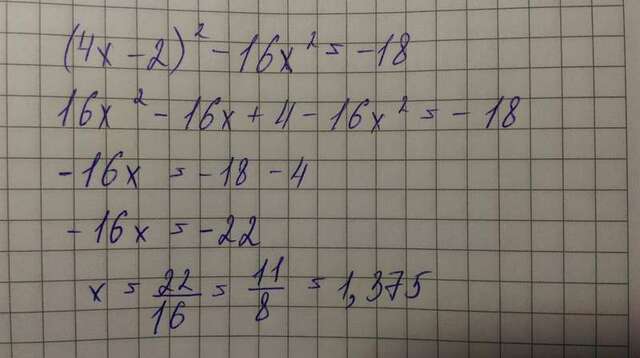 (4x - 2)² - 16x² = -18
16x² - 16x + 4 - 16x² = - 18
-16x = -18 - 4
- 16x = -22
x = 22/16 = 11/8 = 1,375